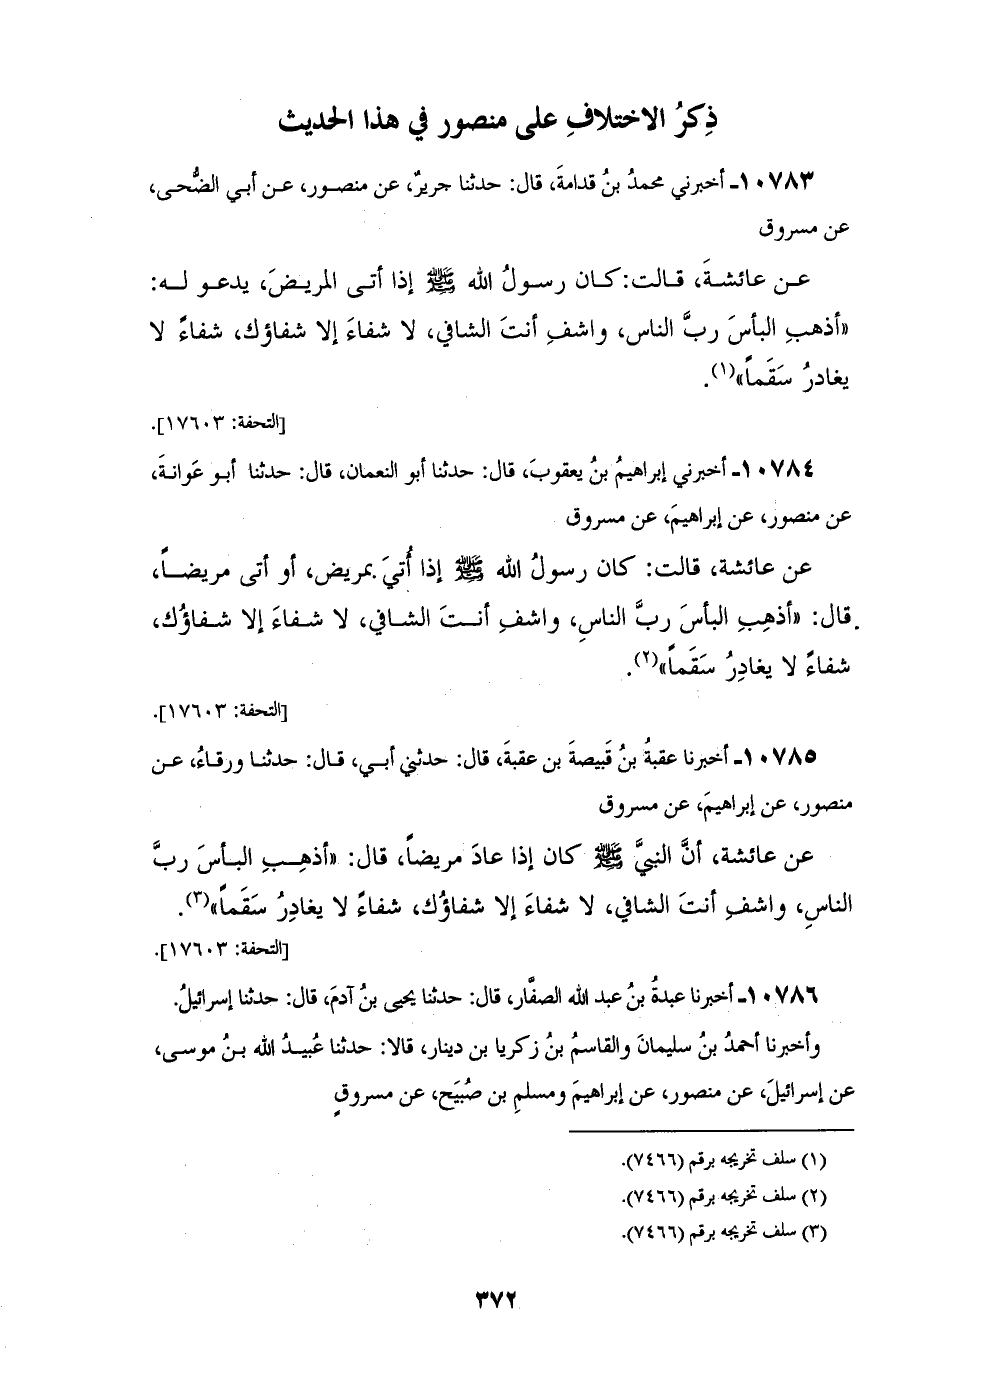 ذِكرُ الاختلافِ على منصور في هذا الحديث
١٠٧٨٣ـ أخبرني محمدُ بنُ قدامةَ، قال: حدثنا جريرٌ، عن منصور، عن أبي الضُّحى،
عن مسروق
عن عائشةَ، قالت: كان رسولُ الله ﷺ إذا أتى المريضَ، يدعو له:
«أذهبِ البأسَ ربَّ الناس، واشفِ أنتَ الشافي، لا شفاءَ إلا شفاؤك، شفاءً لا
يغادرُ سَقَماً»(١).
[التحفة: ١٧٦٠٣].
١٠٧٨٤ـ أخبرني إبراهيمُ بنُ يعقوبَ، قال: حدثنا أبو النعمان، قال: حدثنا أبو عَوانةَ،
عن منصور، عن إبراهيمَ، عن مسروق
عن عائشة، قالت: كان رسولُ الله ﷺ إذا أُتيَ بمريض، أو أتى مريضاً،
قال: «أذهِبِ البأسَ ربَّ الناسِ، واشفِ أنتَ الشافي، لا شفاءَ إلا شفاؤُك،
شفاءً لا يغادِرُ سَقَماً»(٢).
[التحفة: ١٧٦٠٣].
١٠٧٨٥ـ أخبرنا عقبةُ بنُ قَبيصةَ بن عقبةَ، قال: حدثني أبي، قال: حدثنا ورقاءُ، عن
منصور، عن إبراهيمَ، عن مسروق
عن عائشة، أنَّ النبيَّ ﷺ كان إذا عادَ مريضاً، قال: «أذهِبِ البأسَ ربَّ
الناسِ، واشفِ أنتَ الشافي، لا شفاءَ إلا شفاؤُك، شفاءً لا يغادِرُ سَقَماً»(٣).
[التحفة: ١٧٦٠٣].
١٠٧٨٦ـ أخبرنا عبدةُ بنُ عبد الله الصفَّار، قال: حدثنا يحيى بنُ آدمَ، قال: حدثنا إسرائيلُ.
وأخبرنا أحمدُ بنُ سليمانَ والقاسمُ بنُ زكريا بن دينار، قالا: حدثنا عُبيدُ الله بنُ موسى،
عن إسرائيلَ، عن منصور، عن إبراهيمَ ومسلمِ بن صُبَيَح، عن مسروقٍ
(١) سلف تخريجه برقم (٧٤٦٦).
(٢) سلف تخريجه برقم (٧٤٦٦).
(٣) سلف تخريجه برقم (٧٤٦٦).
٣٧٢